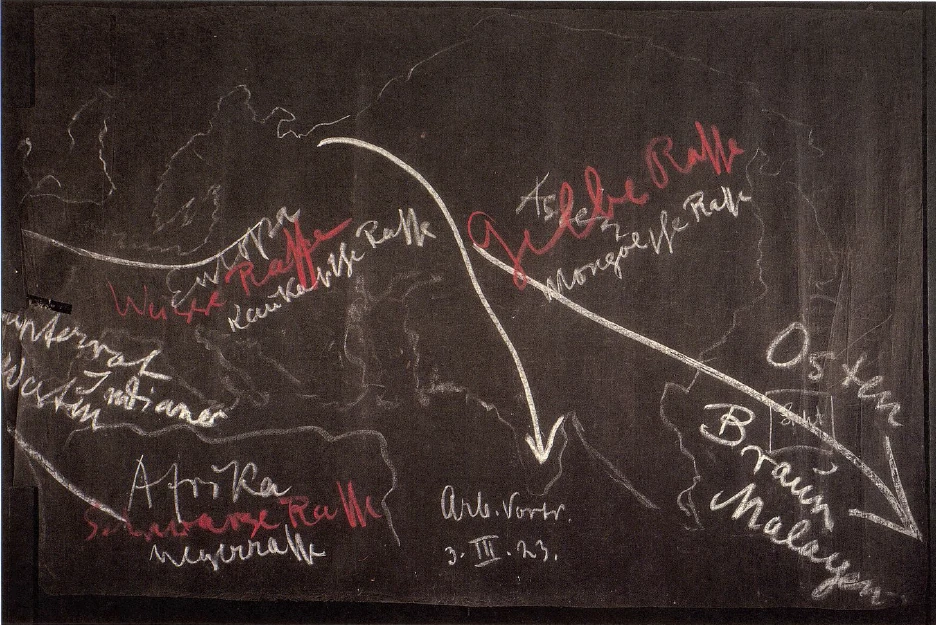 Europa
Weiße Rasse
Kaukasische Rasse
Asien
Gelbe Rasse
Mongolische Rasse
Osten
Westen
Indianer
Braun
Malayen
Afrika
Schwarze Rasse
Negerrasse
Arb. Vortr.
3. III. 23.